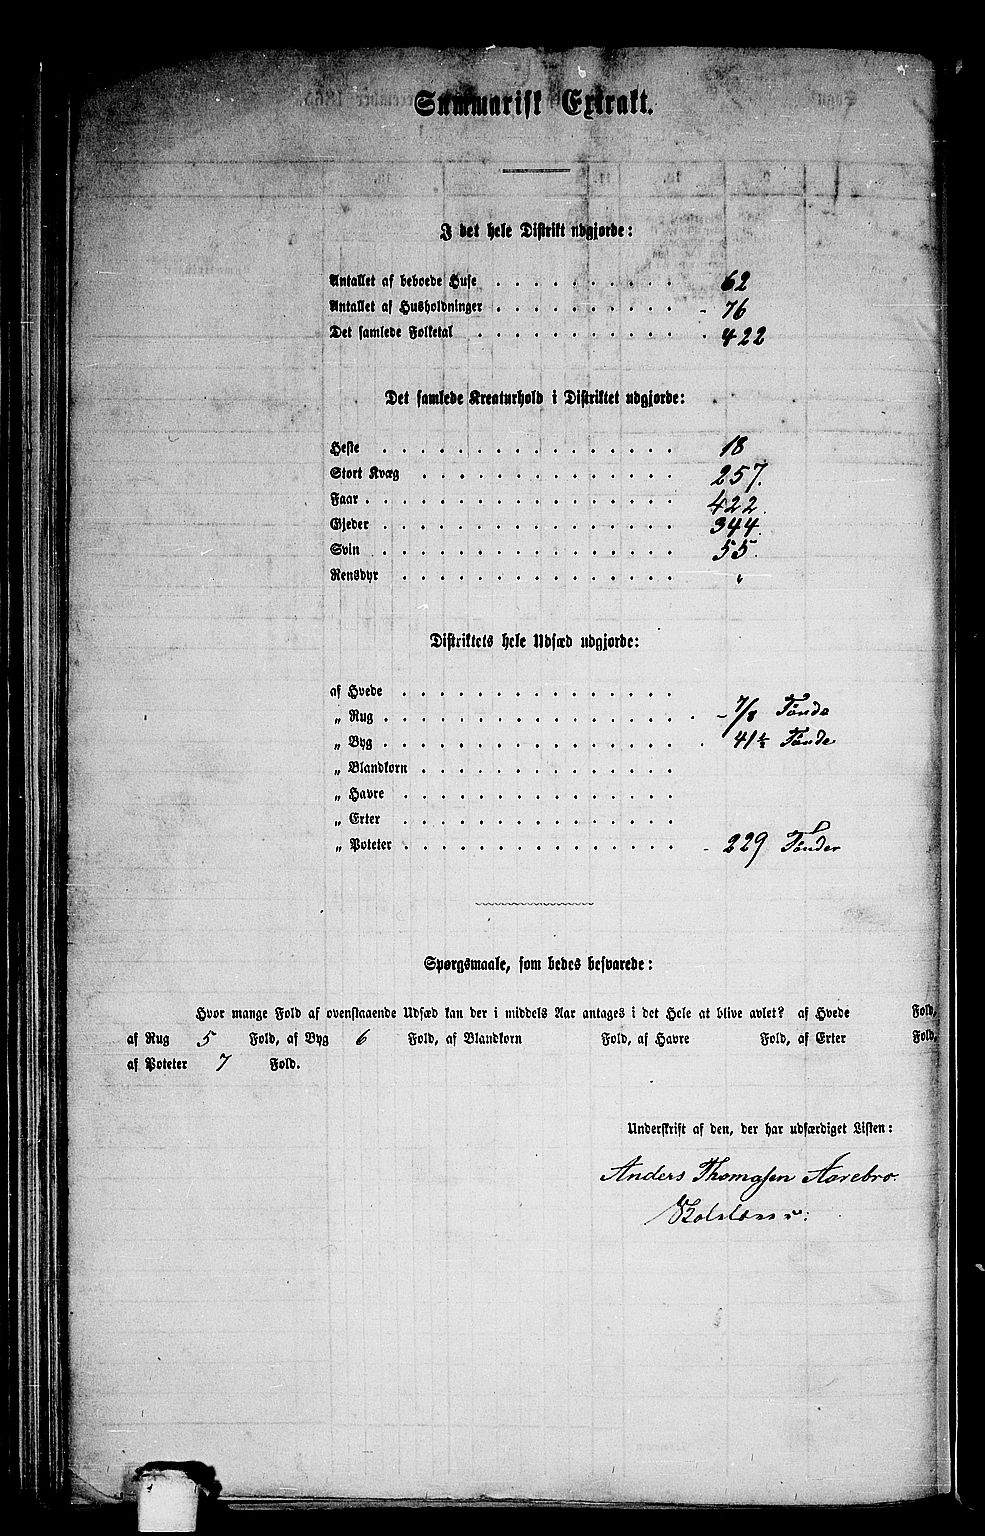 Summarisk Extrakt.
I det hele Distrikt udgjorde:
Antallet af beboede Huse . . . . . . . . . . 62
Antallet af Husholdninger . . . . . . . . . . - 76
Det samlede Folketal . . . . . . . . . . . . . 422
Det samlede Kreaturhold i Distriktet udgjorde:
Heste . . . . . . . . . . . . . . . . 18
Stort Kvæg . . . . . . . . . . . . . . 257.
Faar . . . . . . . . . . . . . . . . . 422.
Gjeder . . . . . . . . . . . . . . . . 344.
Svin . . . . . . . . . . . . . . . . 55.
Rensdyr . . . . . . . . . . . . . . . "
Distriktets hele Udsæd udgjorde:
af Hvede . . . . . . . . . . . . . . .
„ Rug . . . . . . . . . . . . . . . . . - 7/8 Tønde
„ Byg . . . . . . . . . . . . . . . . . 41½ Tønde
„ Blandkorn . . . . . . . . . . . . . .
„ Havre . . . . . . . . . . . . . . .
„ Erter . . . . . . . . . . . . . . .
„ Poteter . . . . . . . . . . . . . . . - 229 Tønder
Spørgsmaale, som bedes besvarede:
Hvor mange Fold af ovenstaaende Udsæd kan der i middels Aar antages i det Hele at blive avlet? af Hvede Fold,
af Rug 5 Fold, af Byg 6 Fold, af Blandkorn Fold, af Havre Fold, af Erter Fold,
af Poteter 7 Fold.
Underskrift af den, der har udfærdiget Listen:
Anders Thomassen Aarebro.